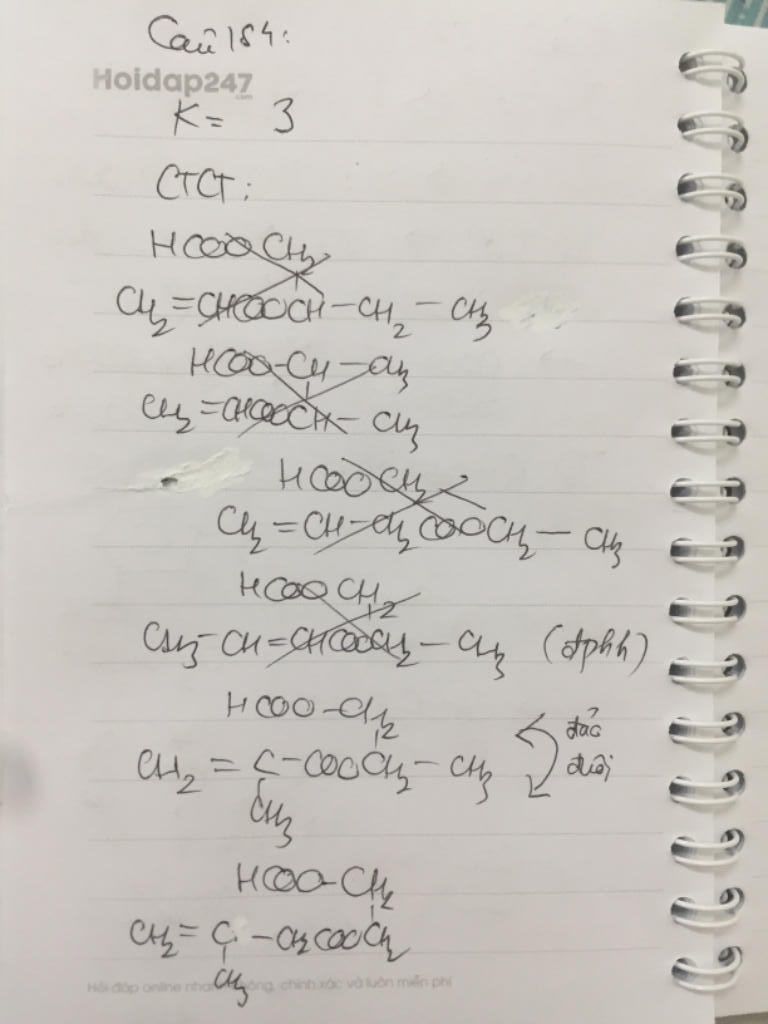 Câu 184:
Hoidap247
.com
K = 3
CTCT:
HCOOCH2
CH2=CHCOOCH-CH2-CH3
HCOO-CH-CH3
CH2=CHCOOCH-CH3
HCOOCH2
CH2=CH-CH2COOCH2-CH3
HCOOCH2
CH3-CH=CHCOOCH2-CH3 (đphh)
HCOO-CH2
CH2=C-COOCH2-CH3
CH3
đảo
đuôi
HCOO-CH2
CH2=C-CH2COOCH2
CH3
Hỏi đáp online nhanh chóng, chính xác và luôn miễn phí